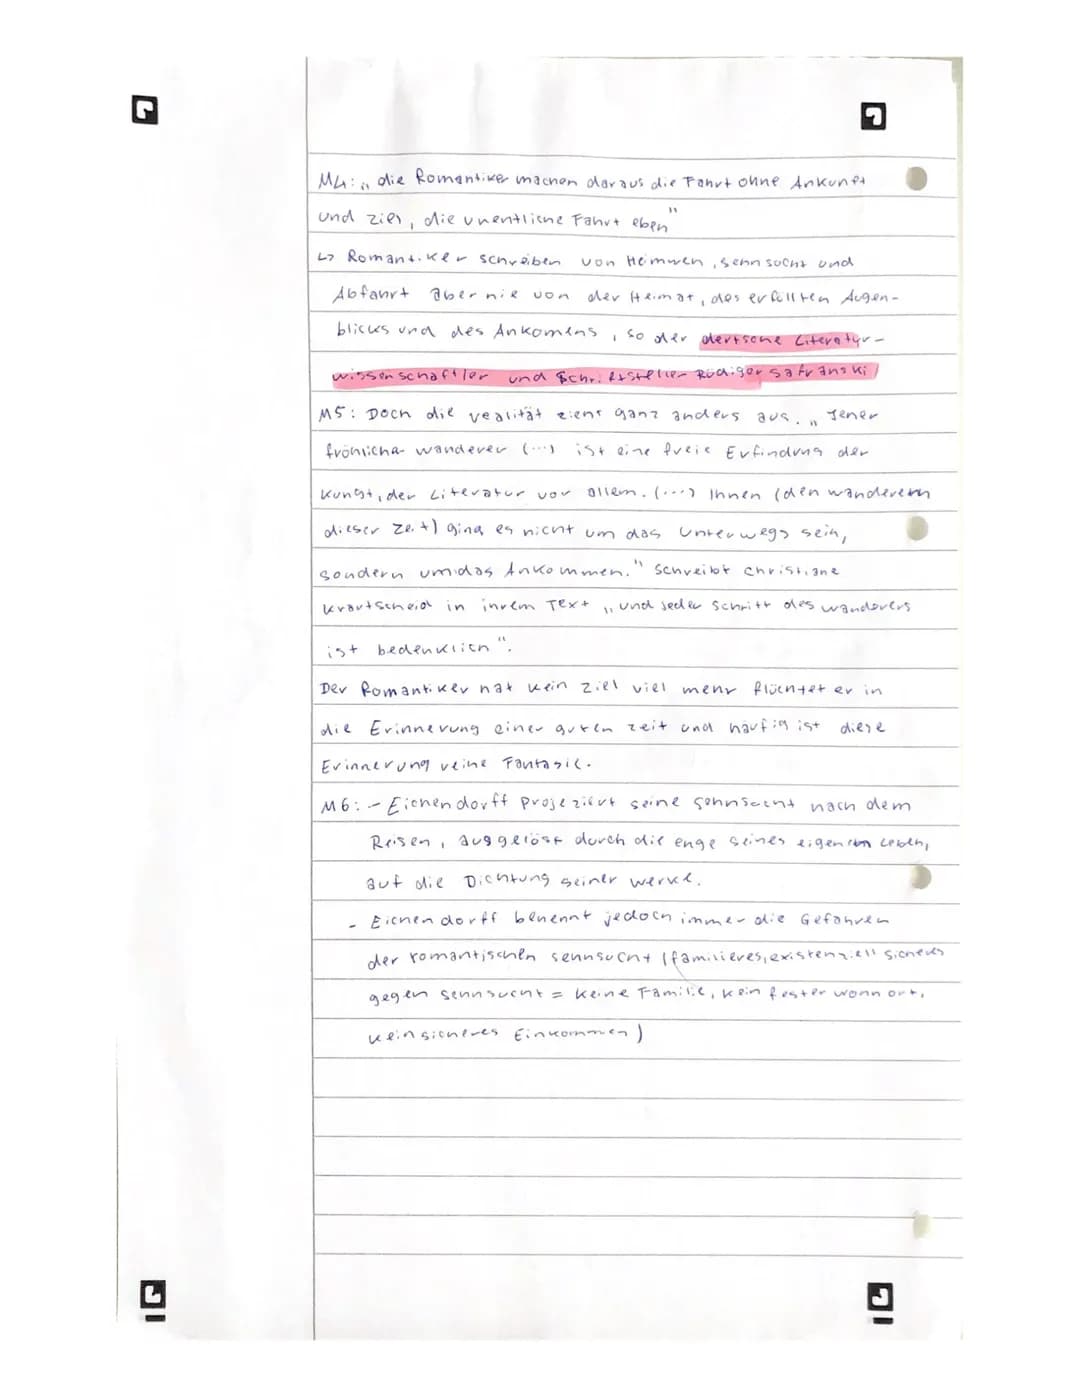 M4: „ die Romantiker machen daraus die Fahrt ohne Ankunft
und ziel, die unentliche Fahrt eben"
↳ Romantiker schreiben von Heimweh, sehnsucht und
Abfahrt aber nie von der Heimat, des erfüllten Augen-
blicks und des Ankomens, so der deutsche Literatur-
wissenschaftler und Schriftsteller Rüdiger Safranski
M5: Doch die realität sieht ganz anders aus. „ Jener
fröhliche wanderer (...) ist eine freie Erfindung der
Kunst, der Literatur vor allem. (...) Ihnen (den wanderern
dieser Zeit) ging es nicht um das Unterwegs sein,
sondern um das Ankommen." schreibt Christiane
Krautscheid in ihrem Text „ und jeder Schritt des wanderers
ist bedenklich".
Der Romantiker hat kein Ziel viel mehr flüchtet er in
die Erinnerung einer guten zeit und häufig ist diese
Erinnerung reine Fantasie.
M6: - Eichendorff projeziert seine sehnsucht nach dem
Reisen, ausgelöst durch die enge seines eigenen Leben,
auf die Dichtung seiner werke.
- Eichendorff benennt jedoch immer die Gefahren
der romantischen sehnsucht (familieres, existenziell sicheres
gegen sehnsucht = keine Familie, kein fester wohnort,
kein sicheres Einkommen)